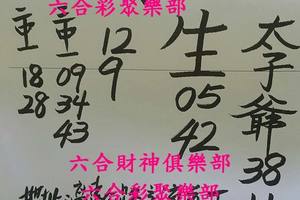 六合彩聚樂部
太子爺
38
生
05
42
12
9
童
09
34
43
童
18
28
六合財神俱樂部
六合彩聚樂部